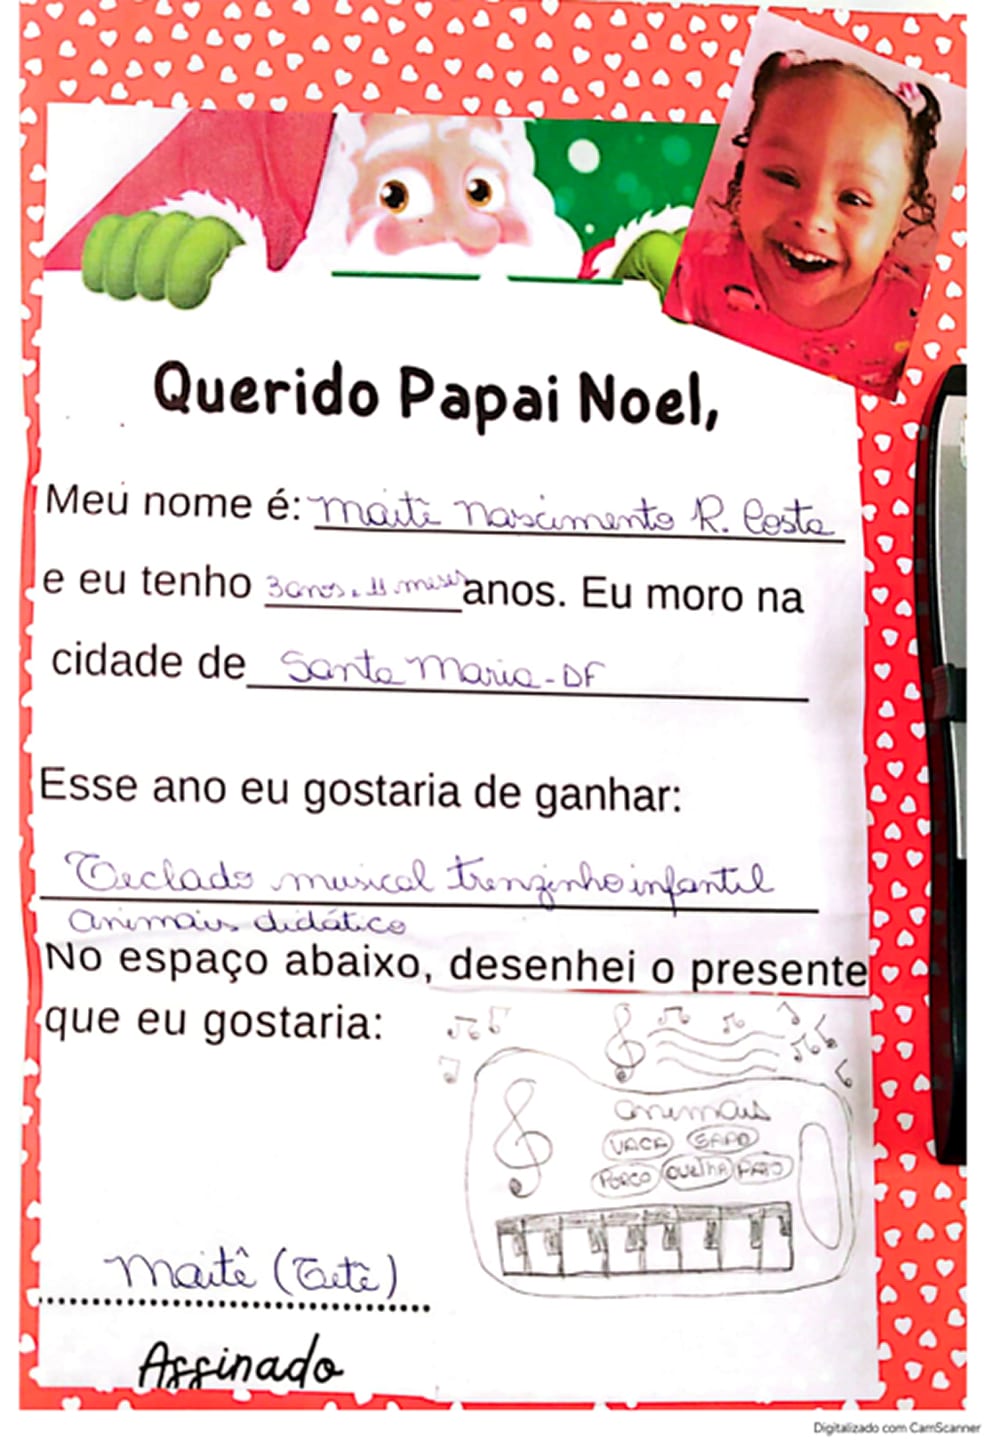 Querido Papai Noel,
Meu nome é: Maitê Nascimento R. Costa
e eu tenho 3 anos e 11 meses anos. Eu moro na
cidade de Santa Maria - DF
Esse ano eu gostaria de ganhar:
Teclado musical trenzinho infantil
animais didático
No espaço abaixo, desenhei o presente
que eu gostaria:
animais
VACA SAPO
PORCO OVELHA PATO
Maitê (Tetê)
Assinado
Digitalizado com CamScanner